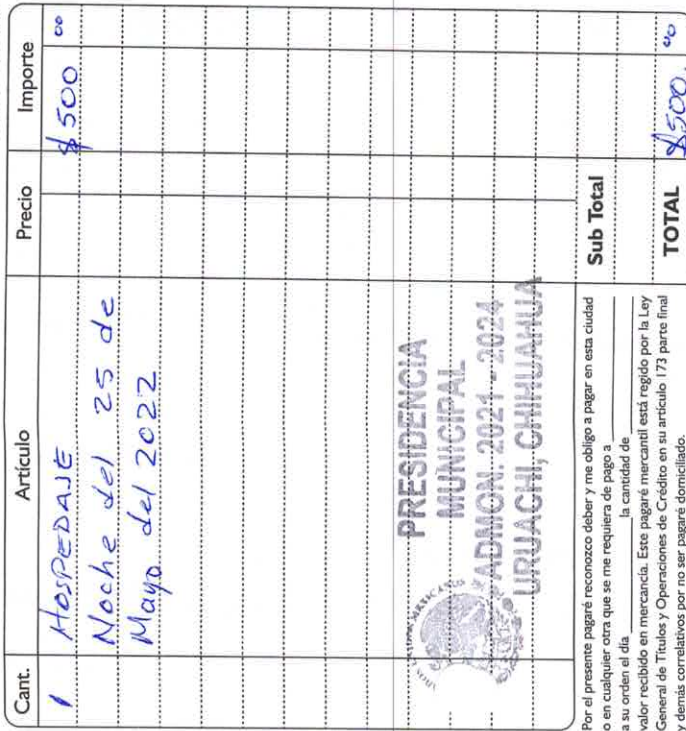 Cant. Artículo Precio Importe
1 HOSPEDAJE $500 00
Noche del 25 de
Mayo del 2022
PRESIDENCIA
MUNICIPAL
ADMON. 2021 - 2024
URUACHI, CHIHUAHUA
Por el presente pagaré reconozco deber y me obligo a pagar en esta ciudad
o en cualquier otra que se me requiera de pago a
a su orden el día la cantidad de
valor recibido en mercancía. Este pagaré mercantil está regido por la Ley
General de Títulos y Operaciones de Crédito en su artículo 173 parte final
y demás correlativos por no ser pagaré domiciliado.
Sub Total
TOTAL $500. 00